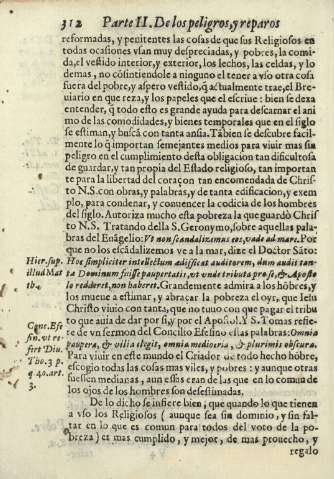 312 Parte II. De los peligros, y reparos
reformadas, y penitentes las cosas de que sus Religiosos en
todas ocasiones vsan muy despreciadas, y pobres, la comi-
da, el vestido interior, y exterior, los lechos, las celdas, y lo
demas, no cōsintiendole a ninguno el tener a vso otra cosa
fuera del pobre, y aspero vestido, q̄ actualmente trae, el Bre-
uiario en que reza, y los papeles que el escriue: bien se dexa
entender, q̄ todo esto es grande ayuda para descarnar el ani
mo de las comodidades, y bienes temporales que en el siglo
se estiman, y buscā con tanta ansia. Tābien se descubre facil-
mente lo q̄ importan semejantes medios para viuir mas sin
peligro en el cumplimiento desta obligacion tan dificultosa
de guardar, y tan propia del Estado religioso, tan importan
te para la libertad del coraçon tan encomendada de Christo
N.S. con obras, y palabras, y de tanta edificacion, y exem
plo, para condenar, y conuencer la codicia de los hombres
del siglo. Autoriza mucho esta pobreza la que guardò Christo
N.S. Tratando della S. Geronymo, sobre aquellas pala-
bras del Euāgelio: Vt non scandalizemus eos, vade ad mare. Por
que no los escādalizemos ve a la mar, dize el Doctor Sāto:
Hier. sup. Hoc simpliciter intellectum ædificat auditorem, dum audit tan-
illud Mat ta Dominum fuisse paupertatis, vt unde tributa pro se, & Aposto
lo redderet, non haberet. Grandemente admira a los hōbres, y
los mueue a estimar, y abraçar la pobreza el oyr, que Iesu
Christo viuio con tanta, que no tuuo con que pagar el tribu
to que auia de dar por si, y por el Apostol. Y S. Tomas refie-
Conc. Efe re de vn sermon del Concilio Efesino estas palabras: Omnia
sin. vt re- paupera, & vilia elegit, omnia mediocria, & plurimis obscura.
fert Diu. Para viuir en este mundo el Criador de todo hecho hōbre,
Tho. 3 p. escogio todas las cosas mas viles, y pobres: y aunque otras
q 40. art. fuessen medianas, aun essas eran de las que en lo comun de
3. los ojos de los hombres son desestimadas.
De lo dicho se infiere bien, que quando lo que tienen
a vso los Religiosos (aunque sea sin dominio, y sin fal-
tar en lo que es comun para todos del voto de la po-
breza) es mas cumplido, y mejor, de mas prouecho, y
regalo